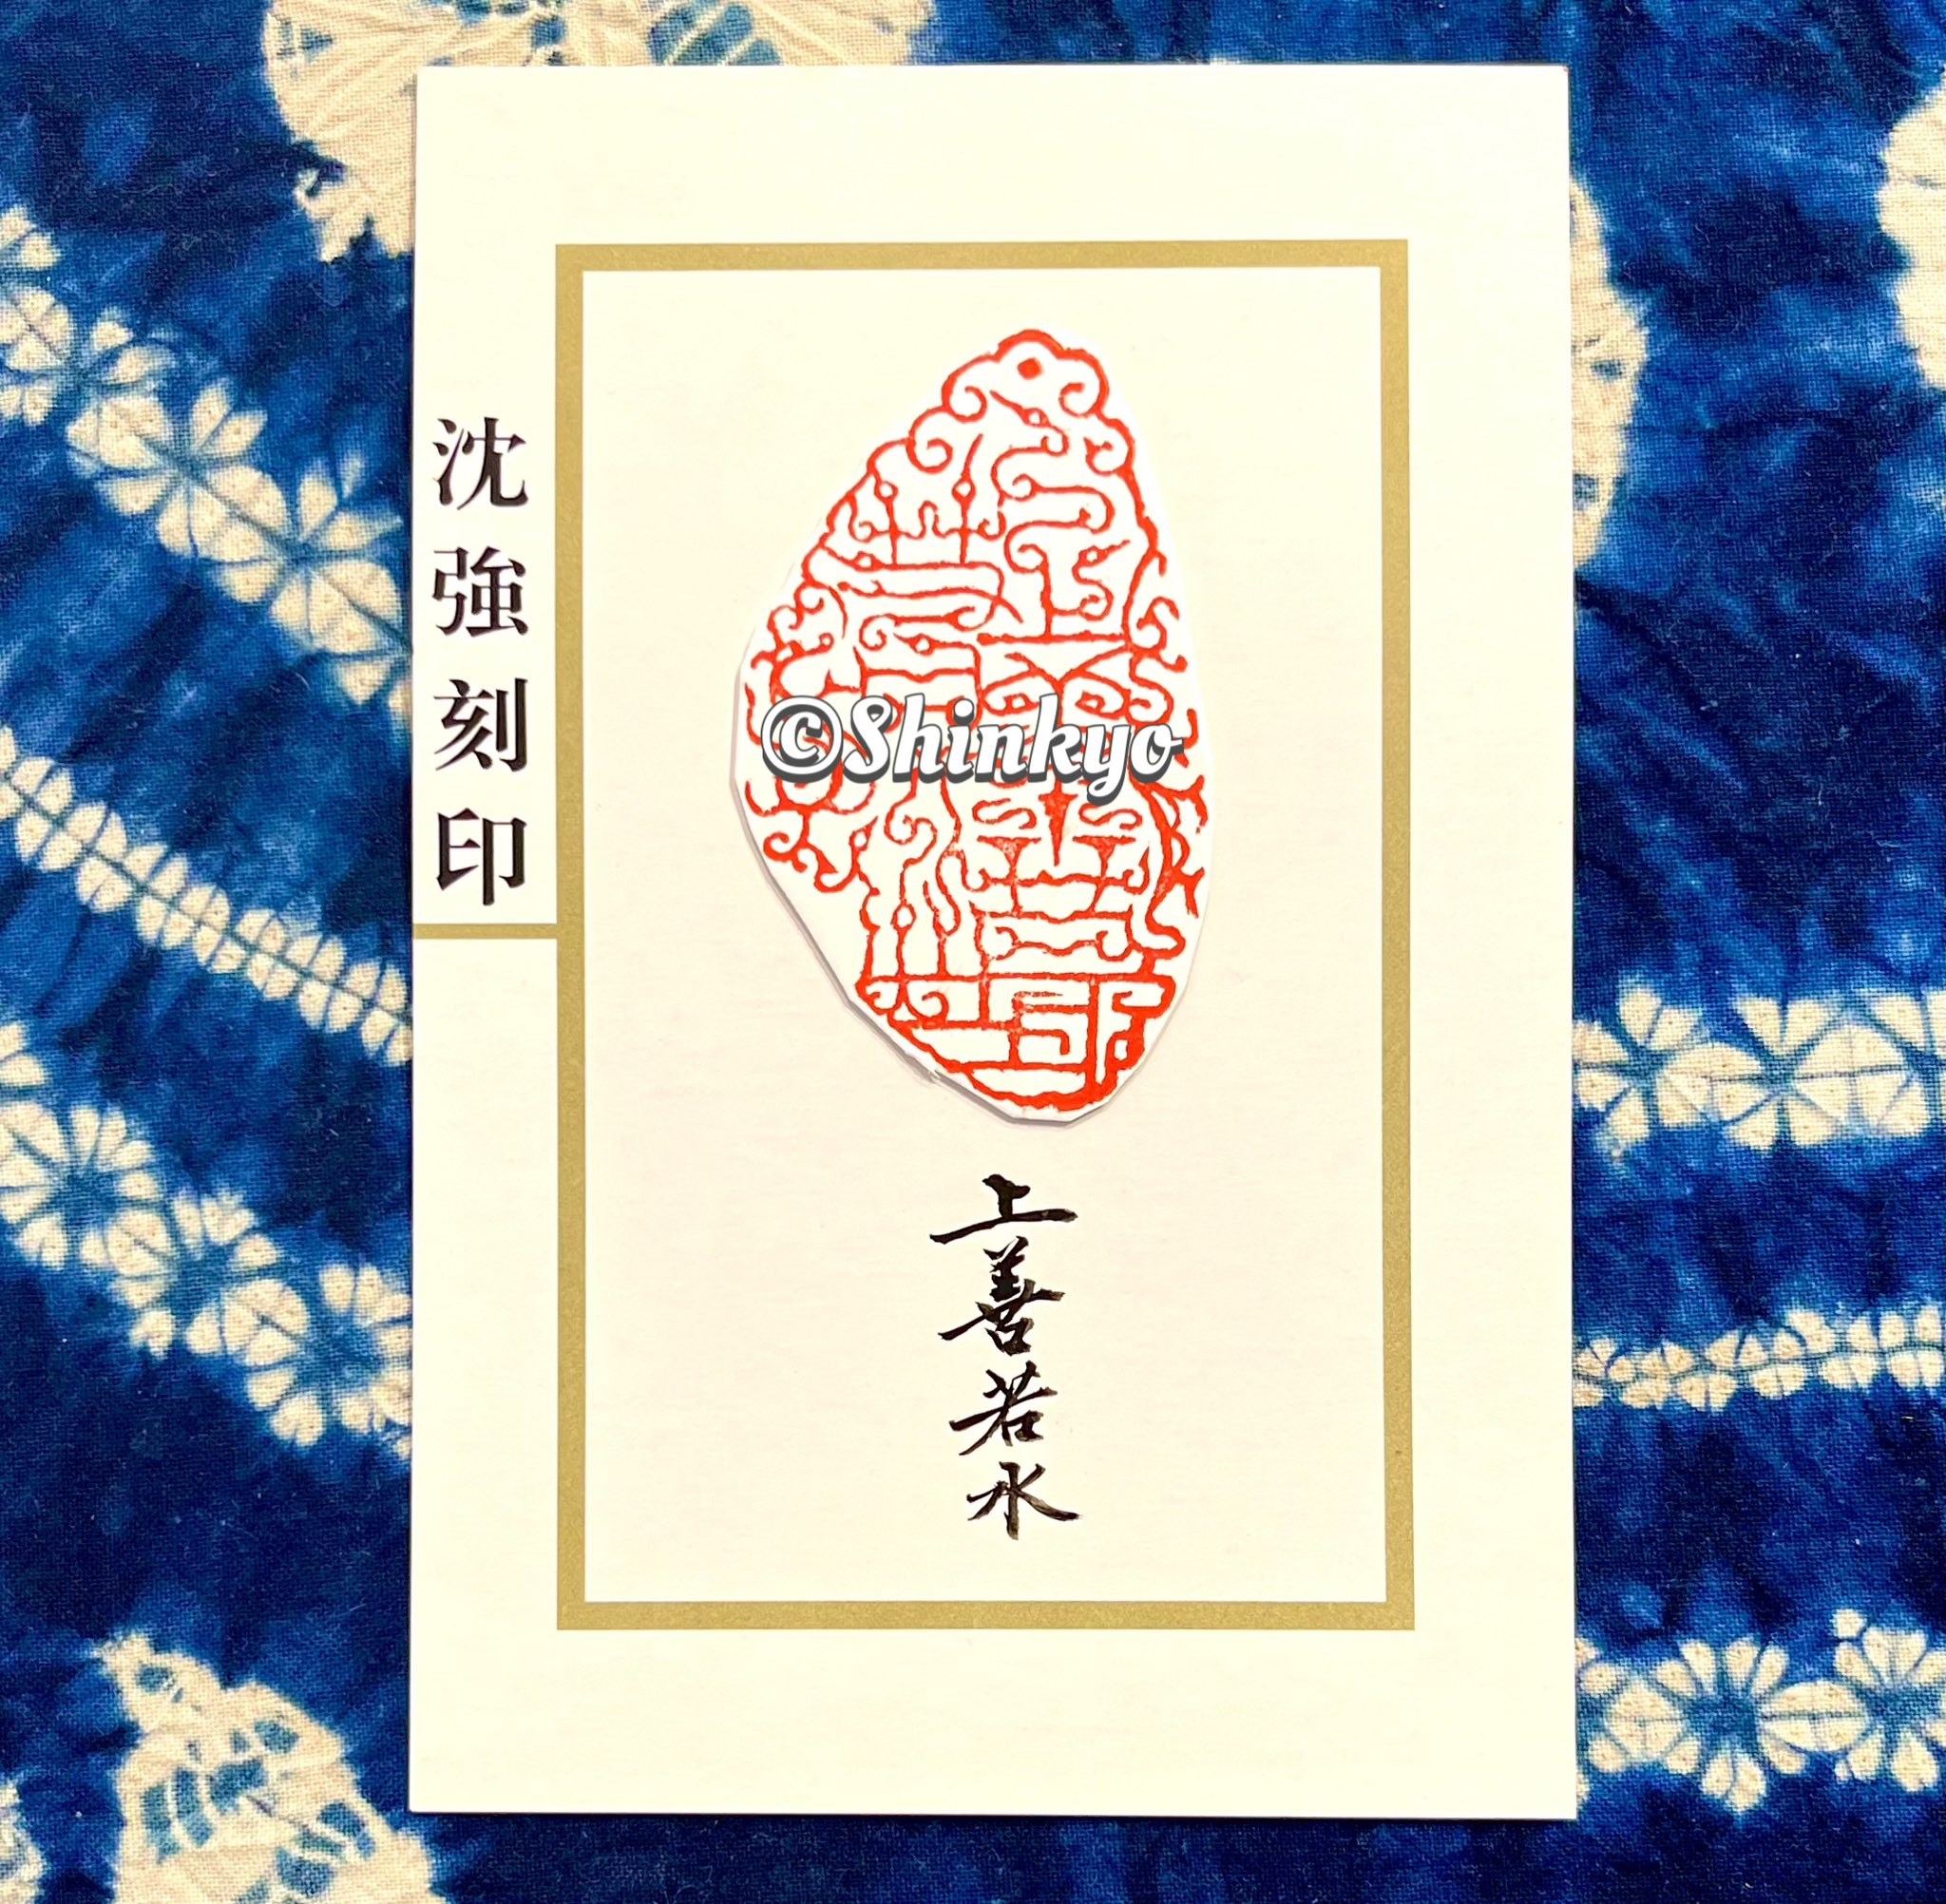 沈強刻印
©Shinkyo
上善若水